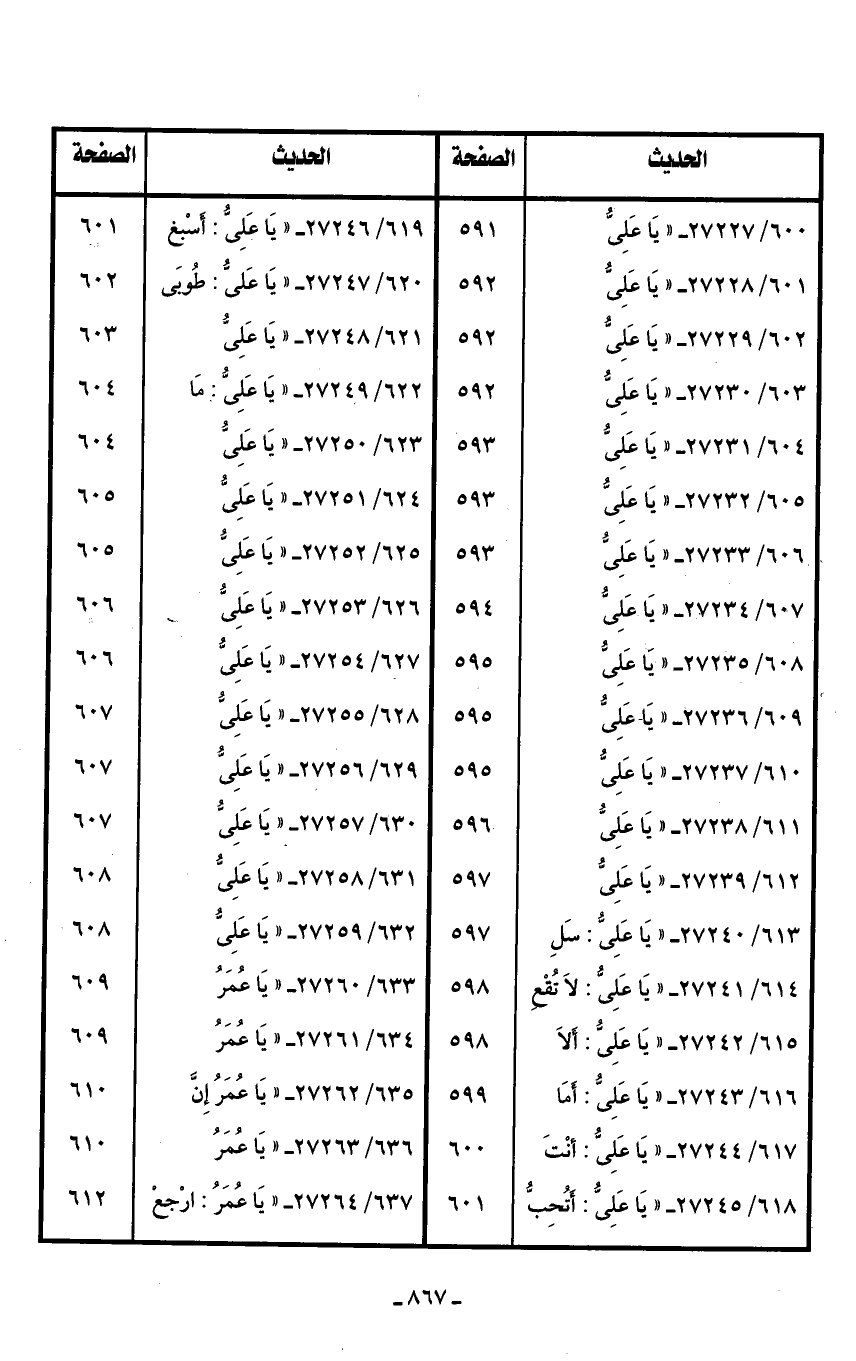 الحديث الصفحة الحديث الصفحة
٦٠٠/ ٢٧٢٢٧ـ « يَا عَلِىُّ ٥٩١ ٦١٩/ ٢٧٢٤٦ـ « يَا عَلِىُّ : أَسْبِغِ ٦٠١
٦٠١/ ٢٧٢٢٨ـ « يَا عَلِىُّ ٥٩٢ ٦٢٠/ ٢٧٢٤٧ـ « يَا عَلِىُّ : طُوبَى ٦٠٢
٦٠٢/ ٢٧٢٢٩ـ « يَا عَلِىُّ ٥٩٢ ٦٢١/ ٢٧٢٤٨ـ « يَا عَلِىُّ ٦٠٣
٦٠٣/ ٢٧٢٣٠ـ « يَا عَلِىُّ ٥٩٢ ٦٢٢/ ٢٧٢٤٩ـ « يَا عَلِىُّ : مَا ٦٠٤
٦٠٤/ ٢٧٢٣١ـ « يَا عَلِىُّ ٥٩٣ ٦٢٣/ ٢٧٢٥٠ـ « يَا عَلِىُّ ٦٠٤
٦٠٥/ ٢٧٢٣٢ـ « يَا عَلِىُّ ٥٩٣ ٦٢٤/ ٢٧٢٥١ـ « يَا عَلِىُّ ٦٠٥
٦٠٦/ ٢٧٢٣٣ـ « يَا عَلِىُّ ٥٩٣ ٦٢٥/ ٢٧٢٥٢ـ « يَا عَلِىُّ ٦٠٥
٦٠٧/ ٢٧٢٣٤ـ « يَا عَلِىُّ ٥٩٤ ٦٢٦/ ٢٧٢٥٣ـ « يَا عَلِىُّ ٦٠٦
٦٠٨/ ٢٧٢٣٥ـ « يَا عَلِىُّ ٥٩٥ ٦٢٧/ ٢٧٢٥٤ـ « يَا عَلِىُّ ٦٠٦
٦٠٩/ ٢٧٢٣٦ـ « يَا عَلِىُّ ٥٩٥ ٦٢٨/ ٢٧٢٥٥ـ « يَا عَلِىُّ ٦٠٧
٦١٠/ ٢٧٢٣٧ـ « يَا عَلِىُّ ٥٩٥ ٦٢٩/ ٢٧٢٥٦ـ « يَا عَلِىُّ ٦٠٧
٦١١/ ٢٧٢٣٨ـ « يَا عَلِىُّ ٥٩٦ ٦٣٠/ ٢٧٢٥٧ـ « يَا عَلِىُّ ٦٠٧
٦١٢/ ٢٧٢٣٩ـ « يَا عَلِىُّ ٥٩٧ ٦٣١/ ٢٧٢٥٨ـ « يَا عَلِىُّ ٦٠٨
٦١٣/ ٢٧٢٤٠ـ « يَا عَلِىُّ : سَلِ ٥٩٧ ٦٣٢/ ٢٧٢٥٩ـ « يَا عَلِىُّ ٦٠٨
٦١٤/ ٢٧٢٤١ـ « يَا عَلِىُّ : لاَ تُقْعِ ٥٩٨ ٦٣٣/ ٢٧٢٦٠ـ « يَا عُمَرُ ٦٠٩
٦١٥/ ٢٧٢٤٢ـ « يَا عَلِىُّ : أَلاَ ٥٩٨ ٦٣٤/ ٢٧٢٦١ـ « يَا عُمَرُ ٦٠٩
٦١٦/ ٢٧٢٤٣ـ « يَا عَلِىُّ : أَمَا ٥٩٩ ٦٣٥/ ٢٧٢٦٢ـ « يَا عُمَرُ إِنَّ ٦١٠
٦١٧/ ٢٧٢٤٤ـ « يَا عَلِىُّ : أنْتَ ٦٠٠ ٦٣٦/ ٢٧٢٦٣ـ « يَا عُمَرُ ٦١٠
٦١٨/ ٢٧٢٤٥ـ « يَا عَلِىُّ : أَتُحِبُّ ٦٠١ ٦٣٧/ ٢٧٢٦٤ـ « يَا عُمَرُ : ارْجِعْ ٦١٢
ـ ٨٦٧ ـ